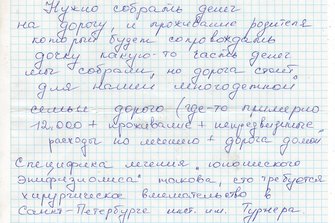 Нужно собрать денег
на дорогу, и проживание родителя
который будет сопровождать
дочку какую-то часть денег
мы собрали, но дорога стоит
для нашей многодетной
семьи дорого (где-то примерно
12.000 + проживание + непредвиденные
расходы по лечению + дорога домой
Специфика лечения "юношеского
эпифизиолиза" такова, что требуется
хирургическое вмешательство в
Санкт-Петербурге инст. им. Турнера.